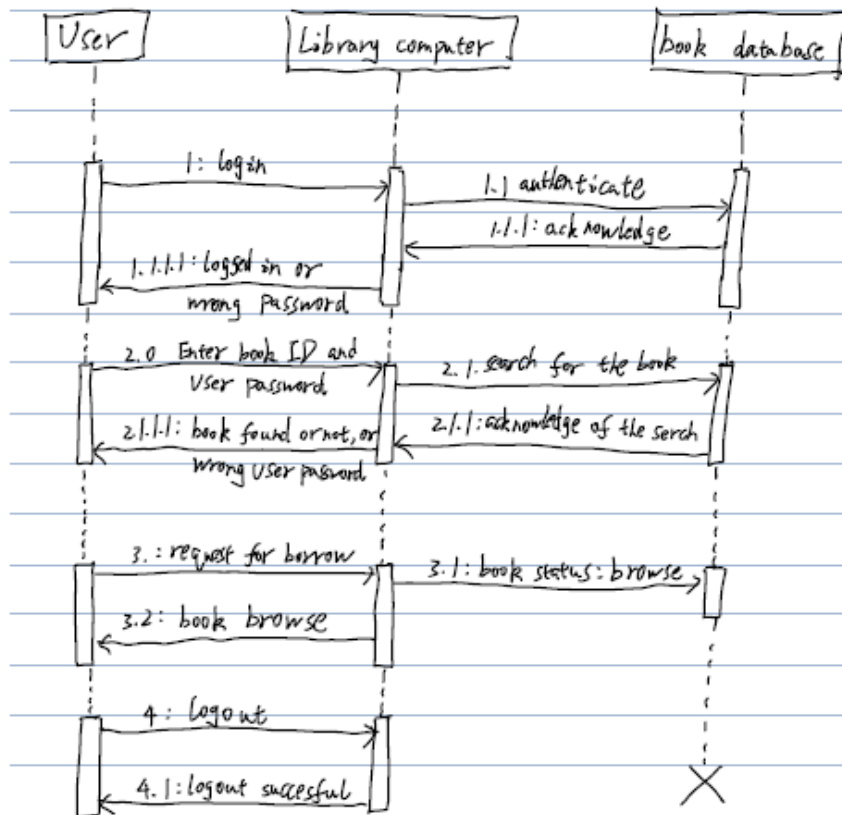 User
Library computer
book database
1: login
1.1 authenticate
1.1.1: acknowledge
1.1.1.1: logged in or
wrong password
2.0 Enter book ID and
User password
2.1. search for the book
2.1.1: acknowledge of the serch
2.1.1.1: book found or not, or
wrong user pasword
3.: request for borrow
3.1: book status: browse
3.2: book browse
4: logout
4.1: logout succesful